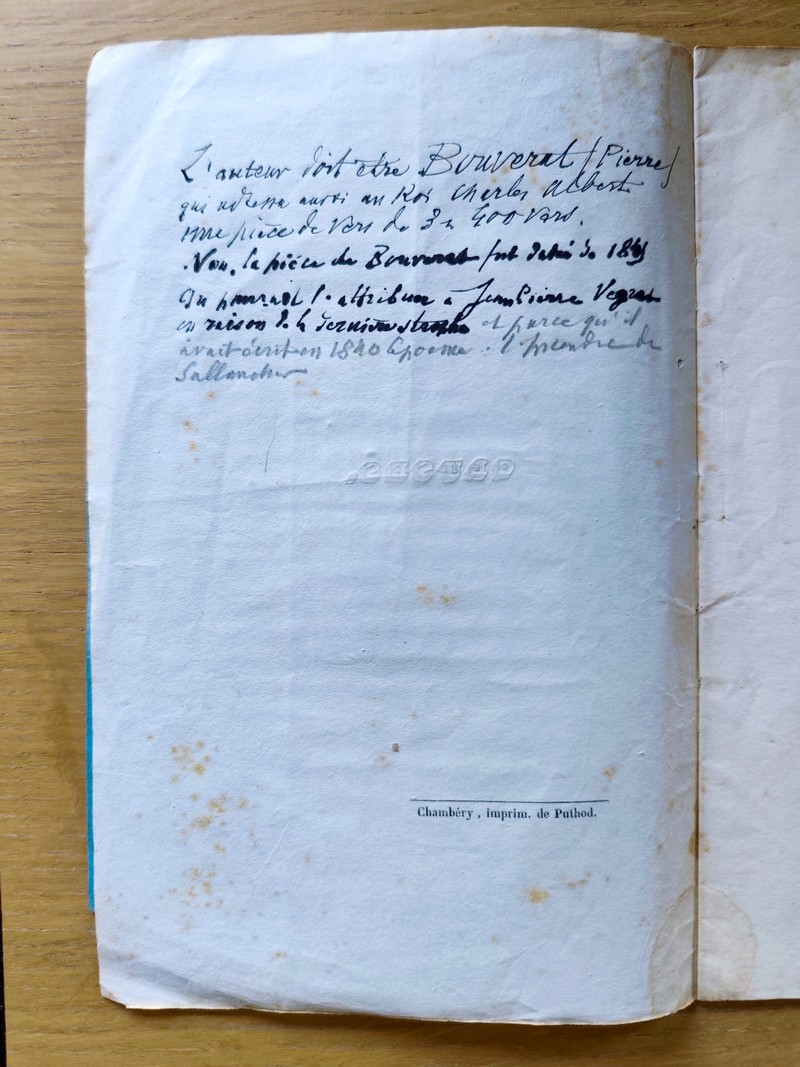 L'auteur doit être Bouverat (Pierre)
qui adressa aussi au Roi Charles Albert
une pièce de vers de 3 à 400 vers.
Non, la pièce de Bouverat fut datée de 18
On pourrait l'attribuer à Jean Pierre Veyrat
en raison de la dernière strophe et parce qu'il
avait écrit en 1840 le poème : l'incendie de
Sallanches
CLUSES.
Chambéry, imprim. de Puthod.